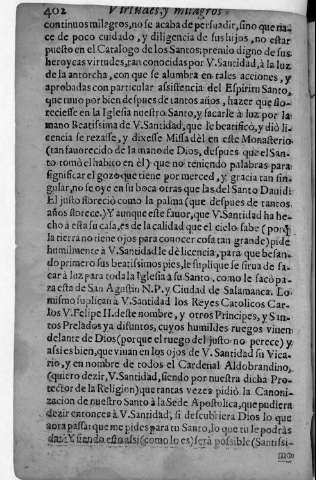 402 Virtudes, y milagros
continuos milagros, no se acaba de persuadir, sino que na-
ce de poco cuidado, y diligencia de sus hijos, no estar
puesto en el Catalogo de los Santos; premio digno de sus
heroycas virtudes, tan conocidas por V. Santidad, à la luz
de la antorcha, con que se alumbra en tales acciones, y
aprobadas con particular assistencia del Espiritu Santo,
que tuuo por bien despues de tantos años, hazer que flo-
reciesse en la Iglesia nuestro Santo, y sacarle à luz por la
mano Beatissima de V. Santidad, que le beatificò, y diò li-
cencia se rezasse, y dixesse Missa dèl en este Monasterio
(tan fauorecido de la mano de Dios, despues que el San-
to tomò el habito en èl) que no teniendo palabras para
significar el gozo que tiene por merced, y gracia tan sin-
gular, no se oye en su boca otras que las del Santo Dauid:
El justo floreciò como la palma (que despues de tantos
años florece.) Y aunque este fauor, que V. Santidad ha he-
cho à esta su casa, es de la calidad que el cielo sabe (porq̃
la tierra no tiene ojos para conocer cosa tan grande) pide
humilmente à V. Santidad le dè licencia, para que besan-
do primero sus beatissimos pies, le suplique se sirua de sa-
car à luz para toda la Iglesia à su Santo, como le sacò pa-
ra esta de San Agustin N. P. y Ciudad de Salamanca. Lo
mismo suplican à V. Santidad los Reyes Catolicos Car-
los V. Felipe II. deste nombre, y otros Principes, y San-
tos Prelados ya difuntos, cuyos humildes ruegos viuen
delante de Dios (porque el ruego del justo no perece) y
assi es bien, que viuan en los ojos de V. Santidad su Vica-
rio, y en nombre de todos el Cardenal Aldobrandino,
(quiero dezir, V. Santidad, siendo por nuestra dicha Pro-
tector de la Religion) que tantas vezes pidiò la Canoni-
zacion de nuestro Santo à la Sede Apostolica, que pudiera
dezir entonces à V. Santidad, si descubriera Dios lo que
aora passa: que me pides para tu Santo, lo que tu le podràs
dar? Y siendo esto assi (como lo es) serà possible (Santissi-